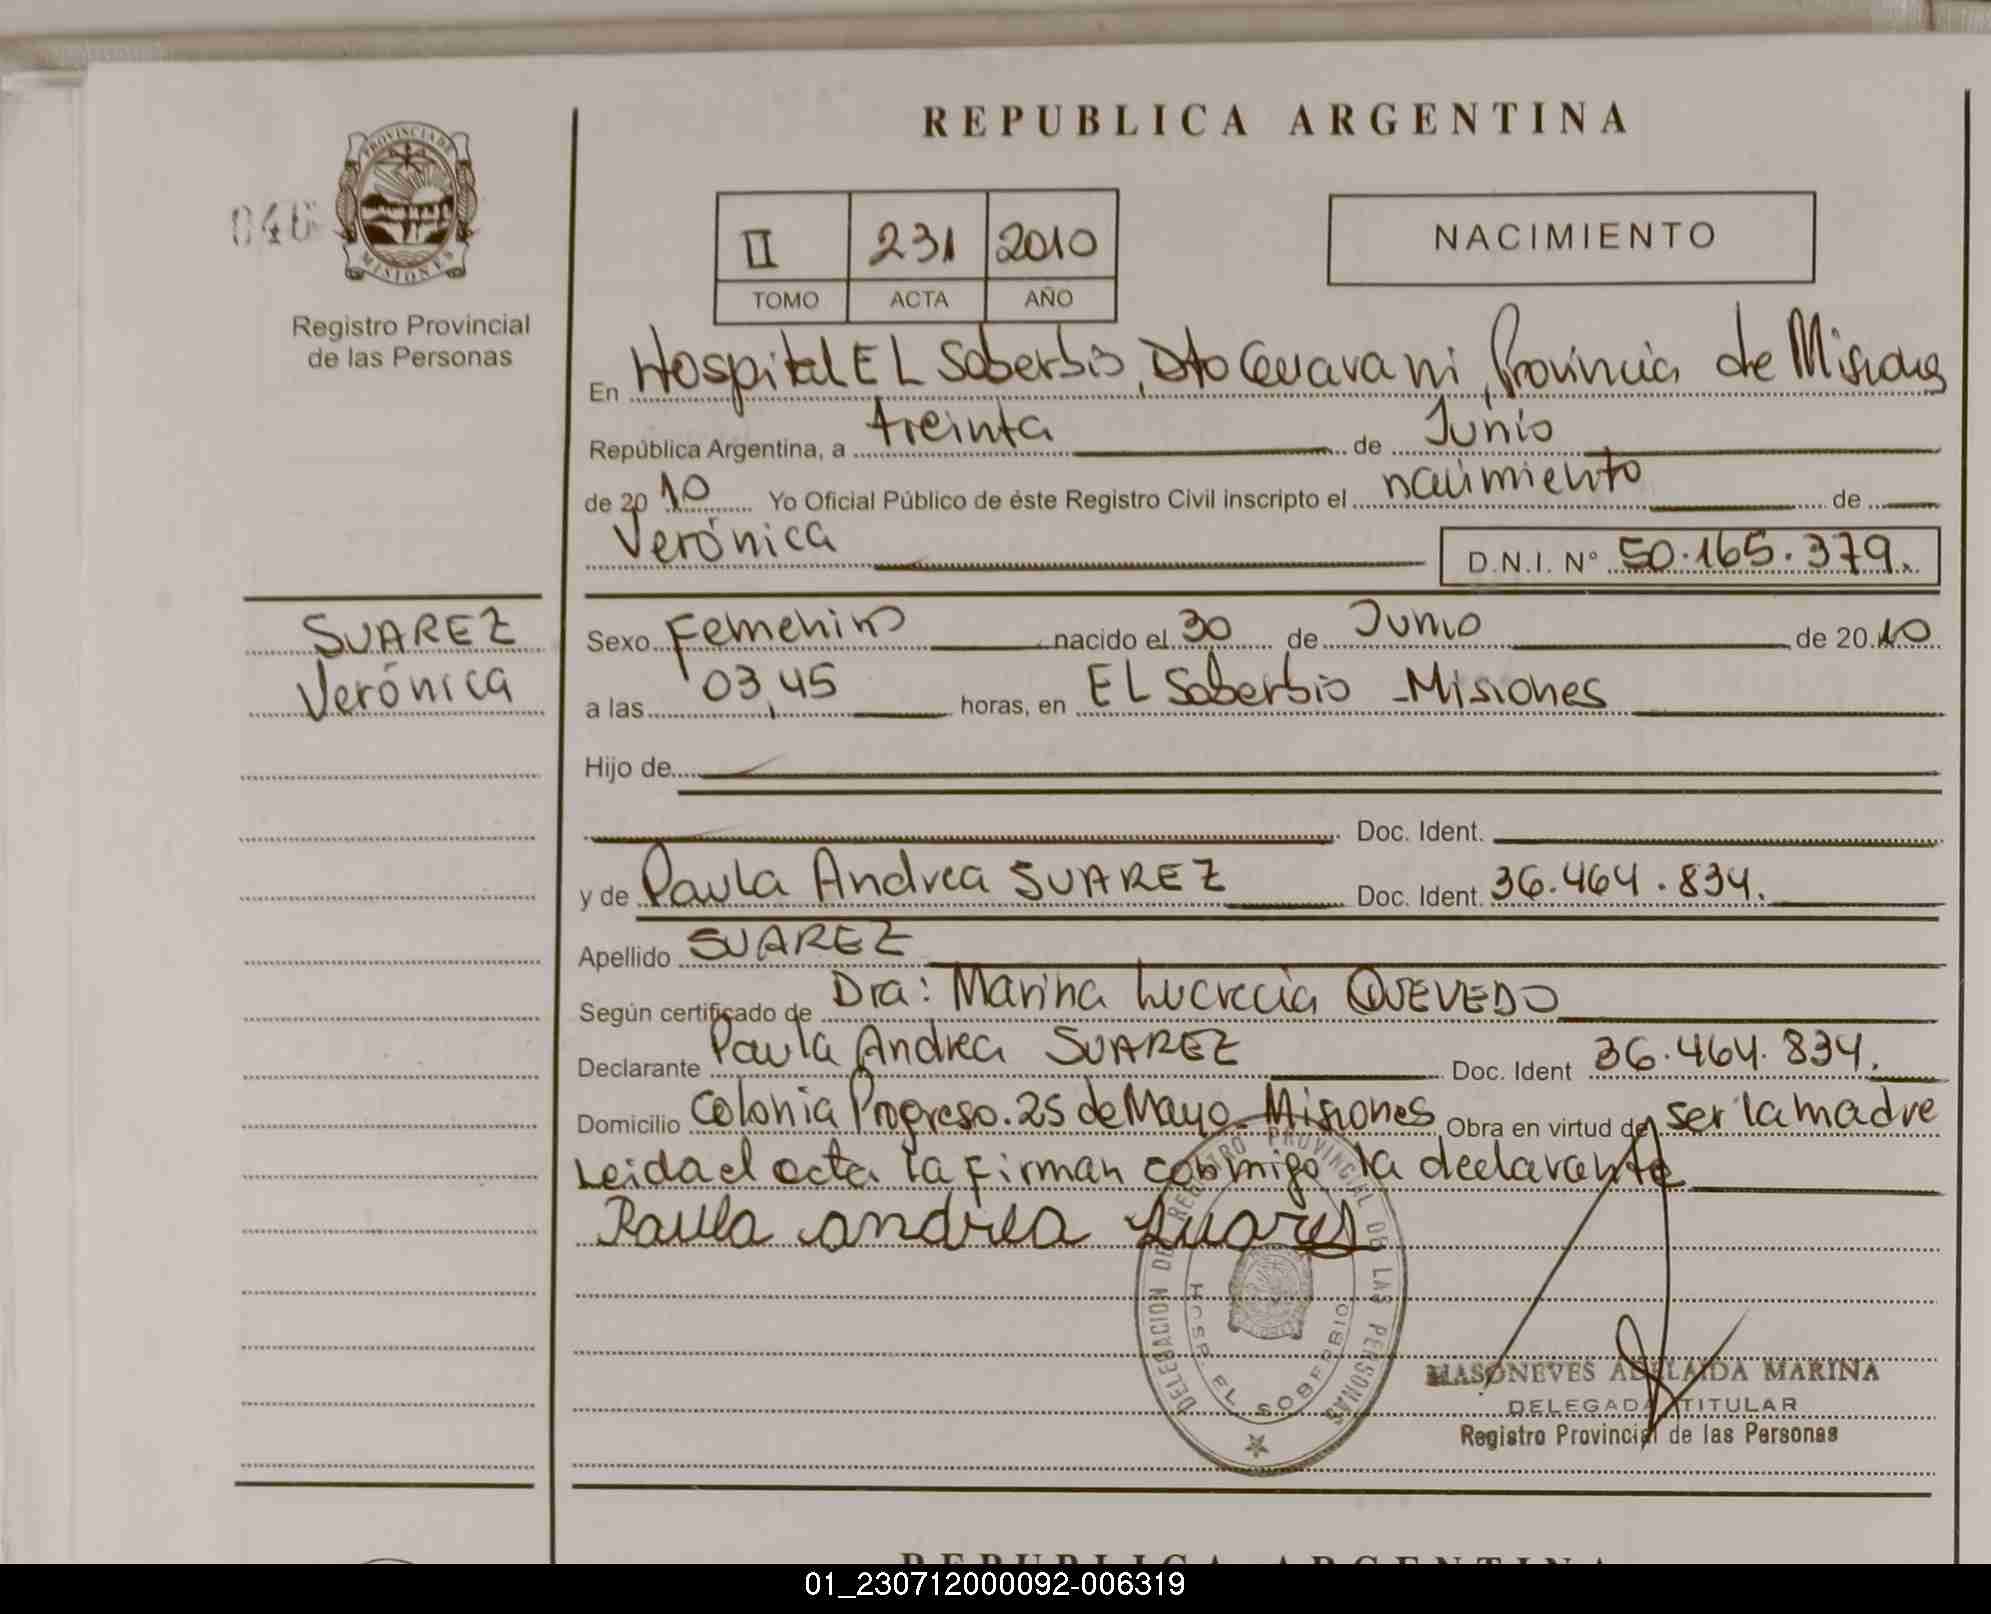 REPUBLICA ARGENTINA
PROVINCIA DE
MISIONES
046
Registro Provincial
de las Personas
II 231 2010
TOMO ACTA AÑO
NACIMIENTO
En Hospital EL Soberbio, Dto Guarani, Provincia de Misiones
República Argentina, a treinta de Junio
de 2010 Yo Oficial Público de éste Registro Civil inscripto el nacimiento de
Verónica D.N.I. N° 50.165.379.
SUAREZ
Verónica
Sexo Femenino nacido el 30 de Junio de 2010
a las 03,45 horas, en EL Soberbio - Misiones
Hijo de
Doc. Ident.
y de Paula Andrea SUAREZ Doc. Ident. 36.464.834.
Apellido SUAREZ
Según certificado de Dra: Marina Lucrecia QUEVEDO
Declarante Paula Andrea SUAREZ Doc. Ident 36.464.834.
Domicilio Colonia Progreso. 25 de Mayo - Misiones Obra en virtud de ser la madre
Leida el acta la firman conmigo la declarante
Paula andrea Suares
DELEGACION DE REGISTRO PROVINCIAL DE LAS PERSONAS
HOSP. EL SOBERBIO
MASONEVES ADELAIDA MARINA
DELEGADA TITULAR
Registro Provincial de las Personas
REPUBLICA ARGENTINA
01_230712000092-006319